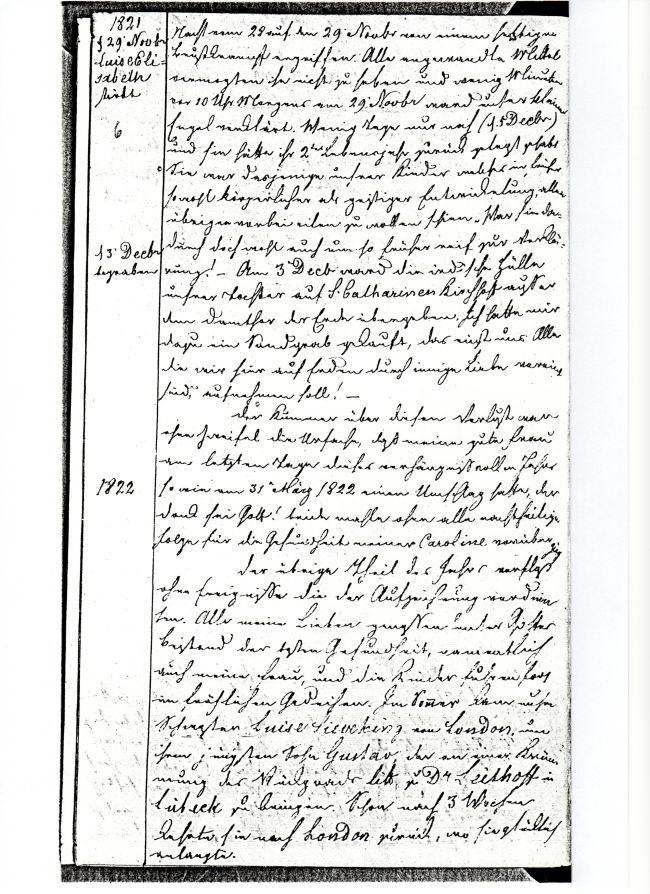 1821
d 29 Novbr
Luise Eli-
sabeth
stirbt
6
Nacht vom 28 auf den 29 Novbr von einem heftigen
Brustkrampf ergriffen. Alle angewandte Mittel
vermogten ihn nicht zu heben und wenig Minuten
vor 10 Uhr Morgens am 29 Novbr ward unser kleiner
Engel verklärt. Wenig Tage nur noch (d 5 Decbr)
und sie hätte ihr 2tes Lebensjahr zurück gelegt gehabt
Sie war dasjenige unsrer Kinder welches in früher
sowohl körperlicher als geistiger Entwickelung, allen
übrigen vorbei eilen zu wollen schien. War sie da-
durch doch wohl auch um so früher reif zur Verklä-
d 3 Decbr
begraben
rung! – Am 3 Decb ward die irdische Hülle
unsrer Tochter auf S. Catharinen Kirchhoff ausser
dem Dammthor der Erde übergeben. Ich hatte mir
dazu ein Sandgrab gekauft, das einst uns Alle
die wir hier auf Erden durch innige Liebe vereint
sind, aufnehmen soll! –
Der Kummer über diesen Verlust war
ohne Zweifel die Ursache, daß meine gute Frau
am letzten Tage dieses verhängnißvollen Jahrs
1822
so wie am 31 März 1822 einen Umschlag hatte, der
Dank sei Gott! beide mahle ohne alle nachtheilige
Folge für die Gesundheit meiner Caroline vorüber
ging
Der übrige Theil des Jahrs verfloß
ohne Ereignisse die der Aufzeichnung verdien
ten. Alle meine Lieben genossen unter Gottes
Beistand der besten Gesundheit, namentlich
auch meine Frau, und die Kinder fuhren fort
im fröhlichen Gedeihen. Im Sommer kam unsre
Schwester Luise Sieveking von London, um
ihren jüngsten Sohn Gustav, der an einer Krüm
mung des Rückgrads litt, zu Dr Leithoff in
Lübeck zu bringen. Schon nach 3 Wochen
kehrte sie nach London zurück, wo sie glücklich
anlangte.